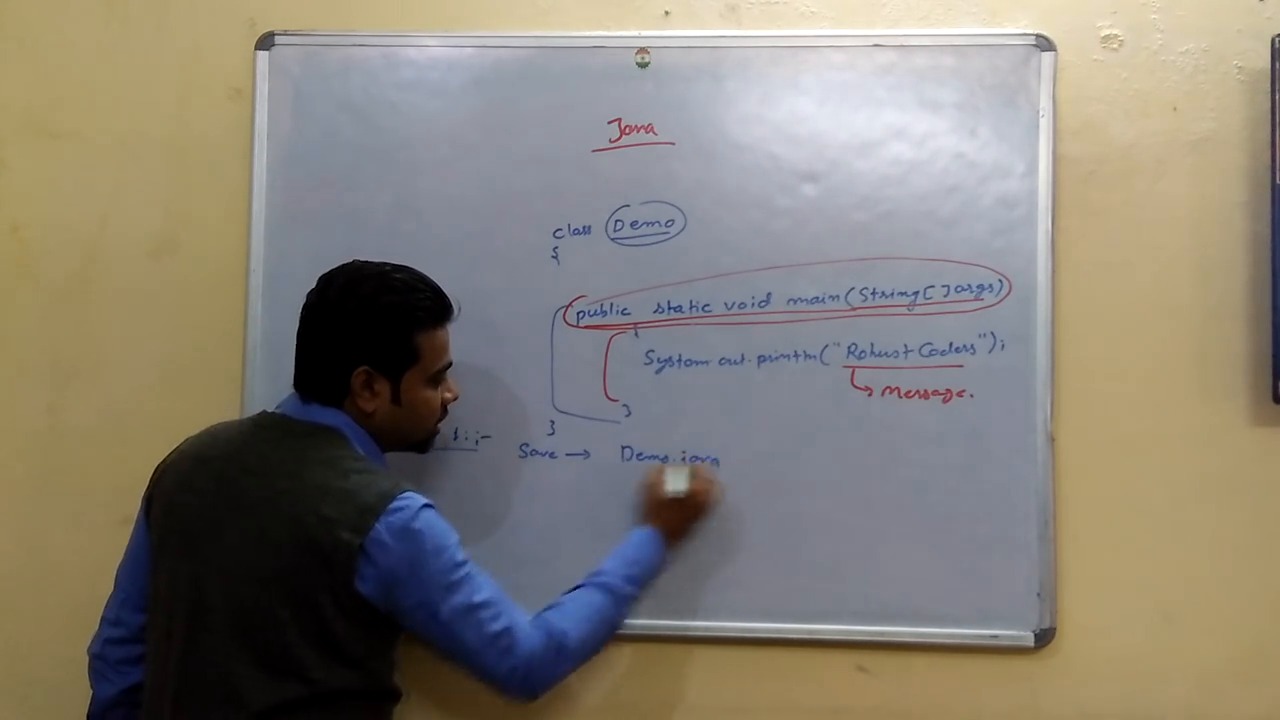 Java
class Demo
{
public static void main(String[] args)
{
System.out.println("Robust Coders");
Message.
}
}
Save → Demo.java